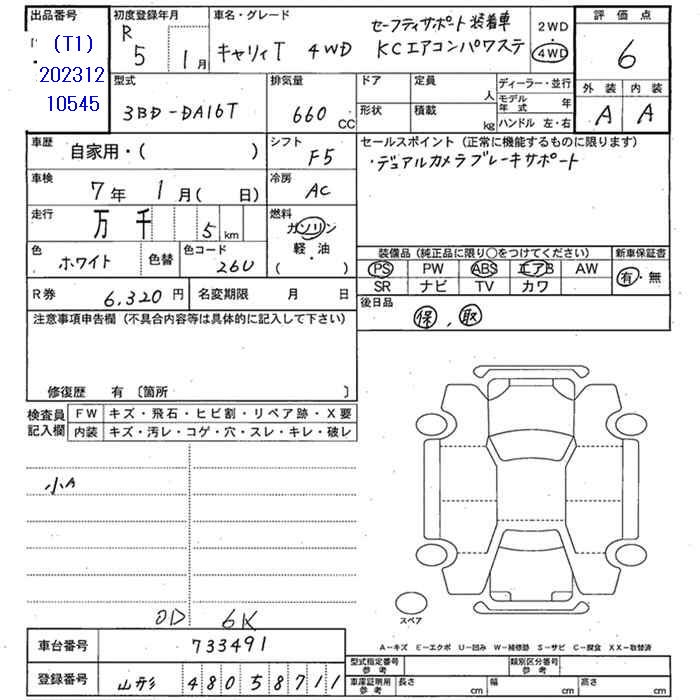 出品番号
(T1)
202312
10545
初度登録年月
R
5 1月
車名・グレード
セーフティサポート装着車
キャリィT 4WD KCエアコンパワステ
2WD
4WD
評価点
6
外装 内装
A A
型式
3BD-DA16T
排気量
660 CC
ドア
形状
定員
人
積載
kg
ディーラー・並行
モデル年式 年
ハンドル 左・右
車歴
自家用・( )
シフト
F5
セールスポイント (正常に機能するものに限ります)
・デュアルカメラブレーキサポート
車検
7年 1月( 日)
冷房
AC
走行
万 千 5 km
燃料
ガソリン
軽・油
( ・ )
色
ホワイト
色替
色コード
26U
装備品 (純正品に限り○をつけてください)
新車保証書
PS PW ABS エアB AW
SR ナビ TV カワ
有・無
R券 6,320円
名変期限 月 日
後日品
保, 取
注意事項申告欄 (不具合内容等は具体的に記入して下さい)
修復歴 有 〔箇所 〕
検査員記入欄
FW キズ・飛石・ヒビ割・リペア跡・X要
内装 キズ・汚レ・コゲ・穴・スレ・キレ・破レ
小A
OD 6K
スペア
A-キズ E-エクボ U-凹み W-補修跡 S-サビ C-腐食 XX-取替済
車台番号 733491
登録番号 山形 480 58711
型式指定番号
参考
類別区分番号
参考
車庫証明用
参考
長さ cm 幅 cm 高さ cm